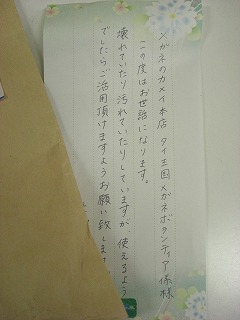 メガネのカメイ本店 タイ王国メガネボランティア係様
この度はお世話になります。
壊れていたり汚れていたりしていますが、使えるよう
でしたらご活用頂けますようお願い致します